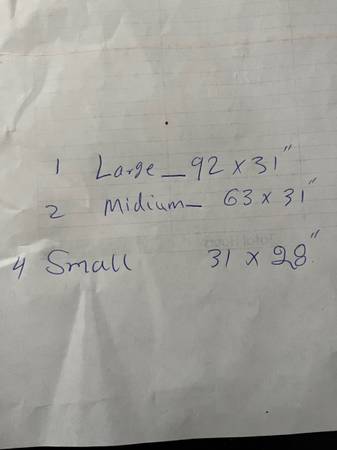 1 Large_ 92 x 31"
2 Midium_ 63 x 31"
4 Small 31 x 28"